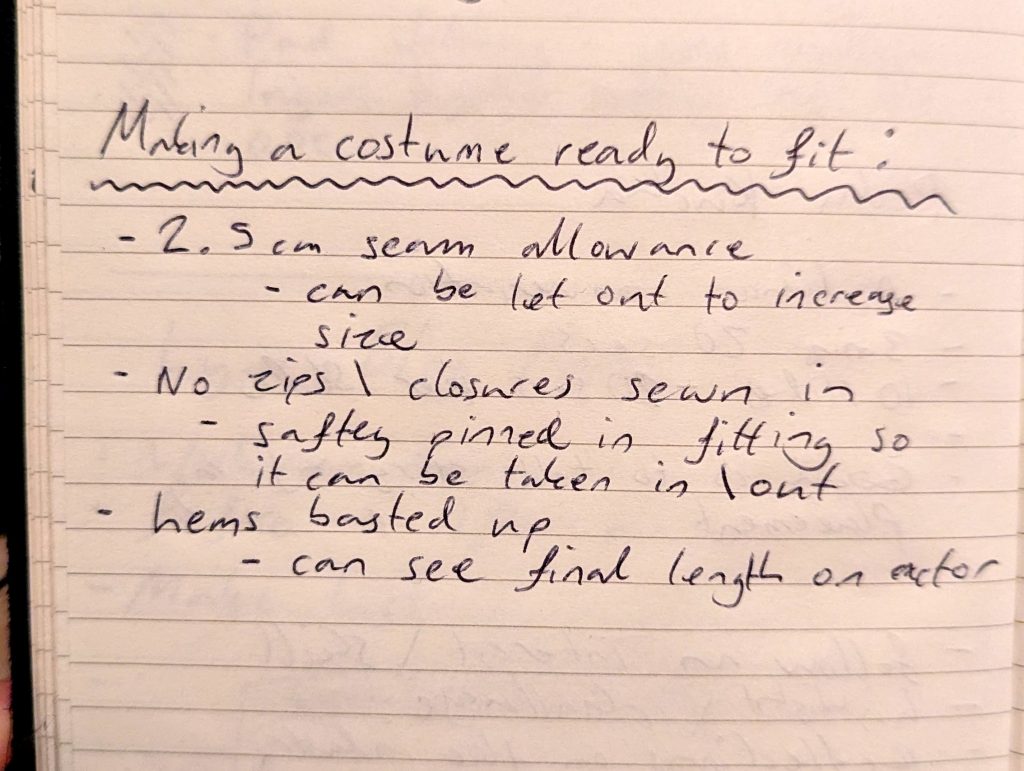 Making a costume ready to fit:
- 2.5cm seam allowance
- can be let out to increase
size
- No zips \ closures sewn in
- saftey pinned in fitting so
it can be taken in \ out
- hems basted up
- can see final length on actor